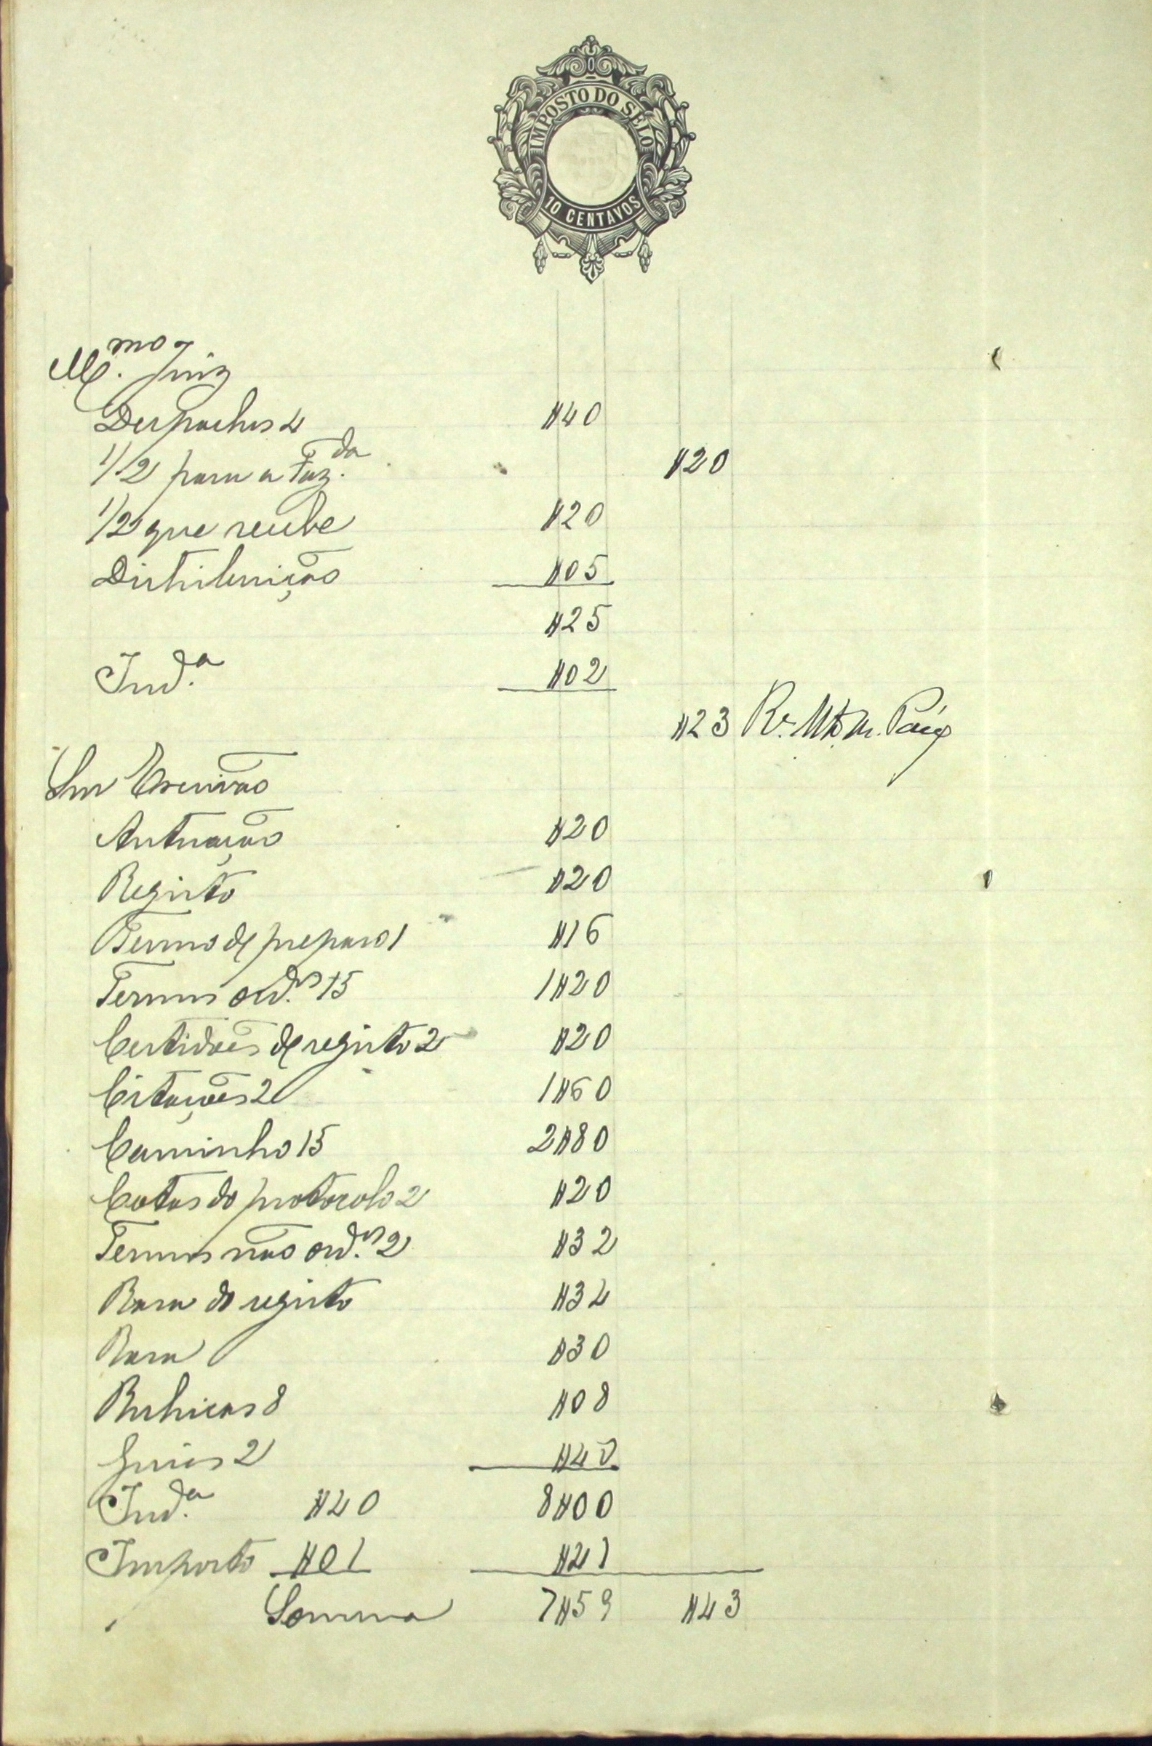 IMPOSTO DO SÊLO
10 CENTAVOS
M.mo Juiz
Despachos 4 $40
1/2 para a Faz.da $20
1/2 que recebe $20
Distribuição $05
$25
Ind.a $02
$23 R.
Snr Escrivão
Autuação $20
Registo $20
Termo de preparo 1 $16
Termos ord.os 15 1$20
Certidões de registo 2 $20
Citações 2 1$60
Caminho 15 2$80
Cotas do protocolo 2 $20
Termos não ord.os 2 $32
Rasa do registo $34
Rasa $30
Rubricas 8 $08
Guias 2 $40
Ind.a $40 8$00
Imposto $01 $41
Somma 7$59 $43